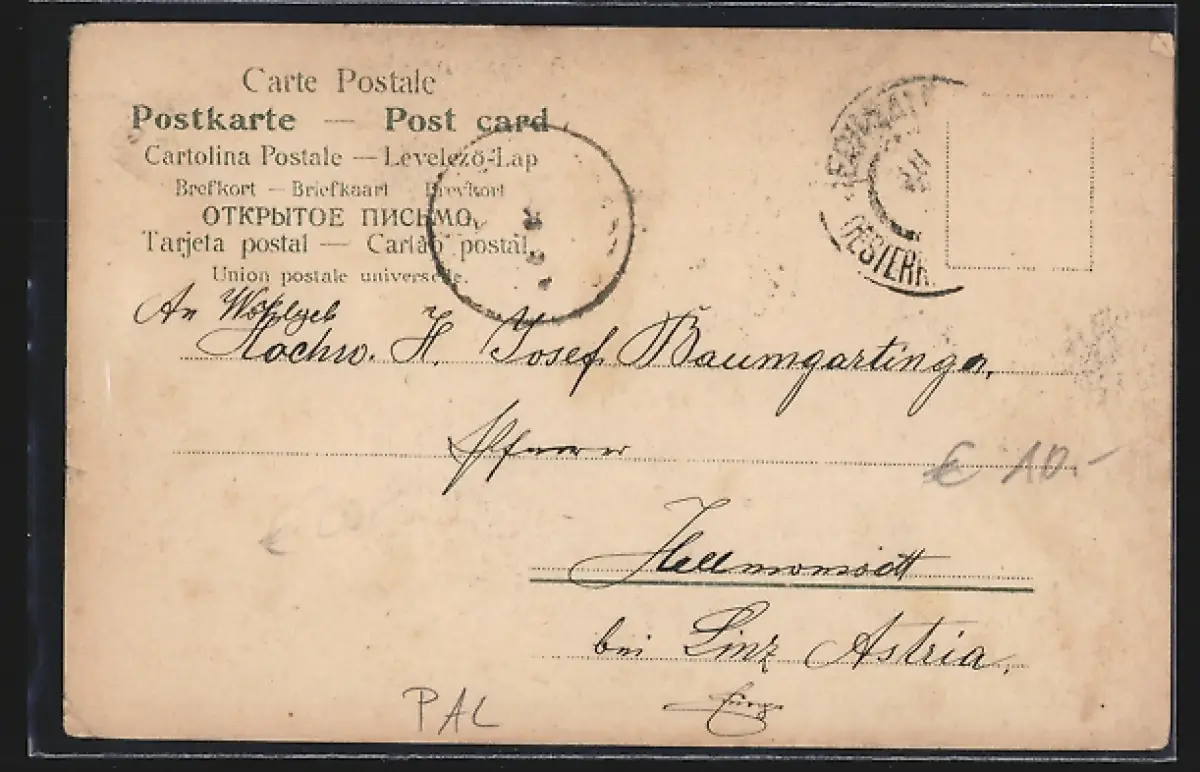 Carte Postale
Postkarte — Post card
Cartolina Postale — Levelező-Lap
Brefkort — Briefkaart Brevkort
ОТКРЫТОЕ ПИСЬМО.
Tarjeta postal — Cartão postal.
Union postale universelle.
An Wohlgeb
Hochw. H. Josef Baumgartinger.
Pfarrer
€ 10.-
Hellmonsödt
bei Linz Astria.
PAL
OESTERR.